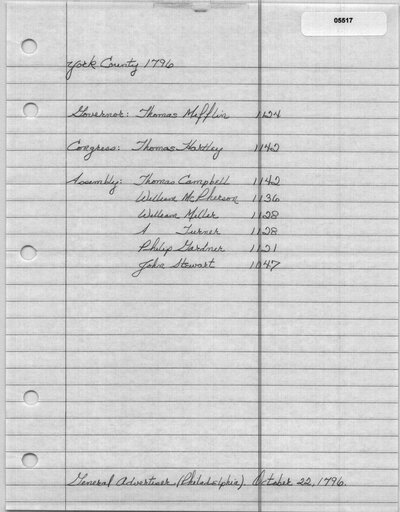 05517
York County 1796
Governor: Thomas Mifflin 1124
Congress: Thomas Hartley 1142
Assembly: Thomas Campbell 1142
William McPherson 1136
William Miller 1128
A Turner 1128
Philip Gardner 1121
John Stewart 1047
General Advertiser (Philadelphia). October 22, 1796.